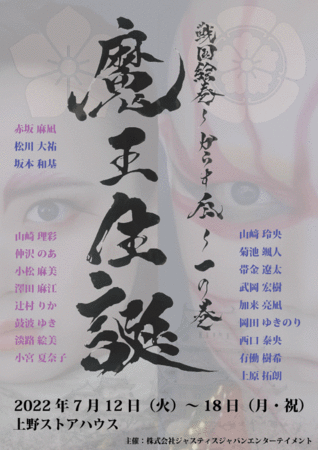 戦国絵巻～からす底～一の巻
魔王生誕
赤坂 麻凪
松川 大祐
坂本 和基
山﨑 理彩
仲沢 のあ
小松 麻美
澤田 麻江
辻村 りか
鼓波 ゆき
淡路 絵美
小宮 夏奈子
山﨑 玲央
菊池 颯人
帯金 遼太
武岡 宏樹
加来 亮凪
岡田 ゆきのり
西口 奏央
有働 樹希
土原 拓朗
2022年7月12日（火）～18日（月・祝）
上野ストアハウス
主催：株式会社ジャスティスジャパンエンターテイメント